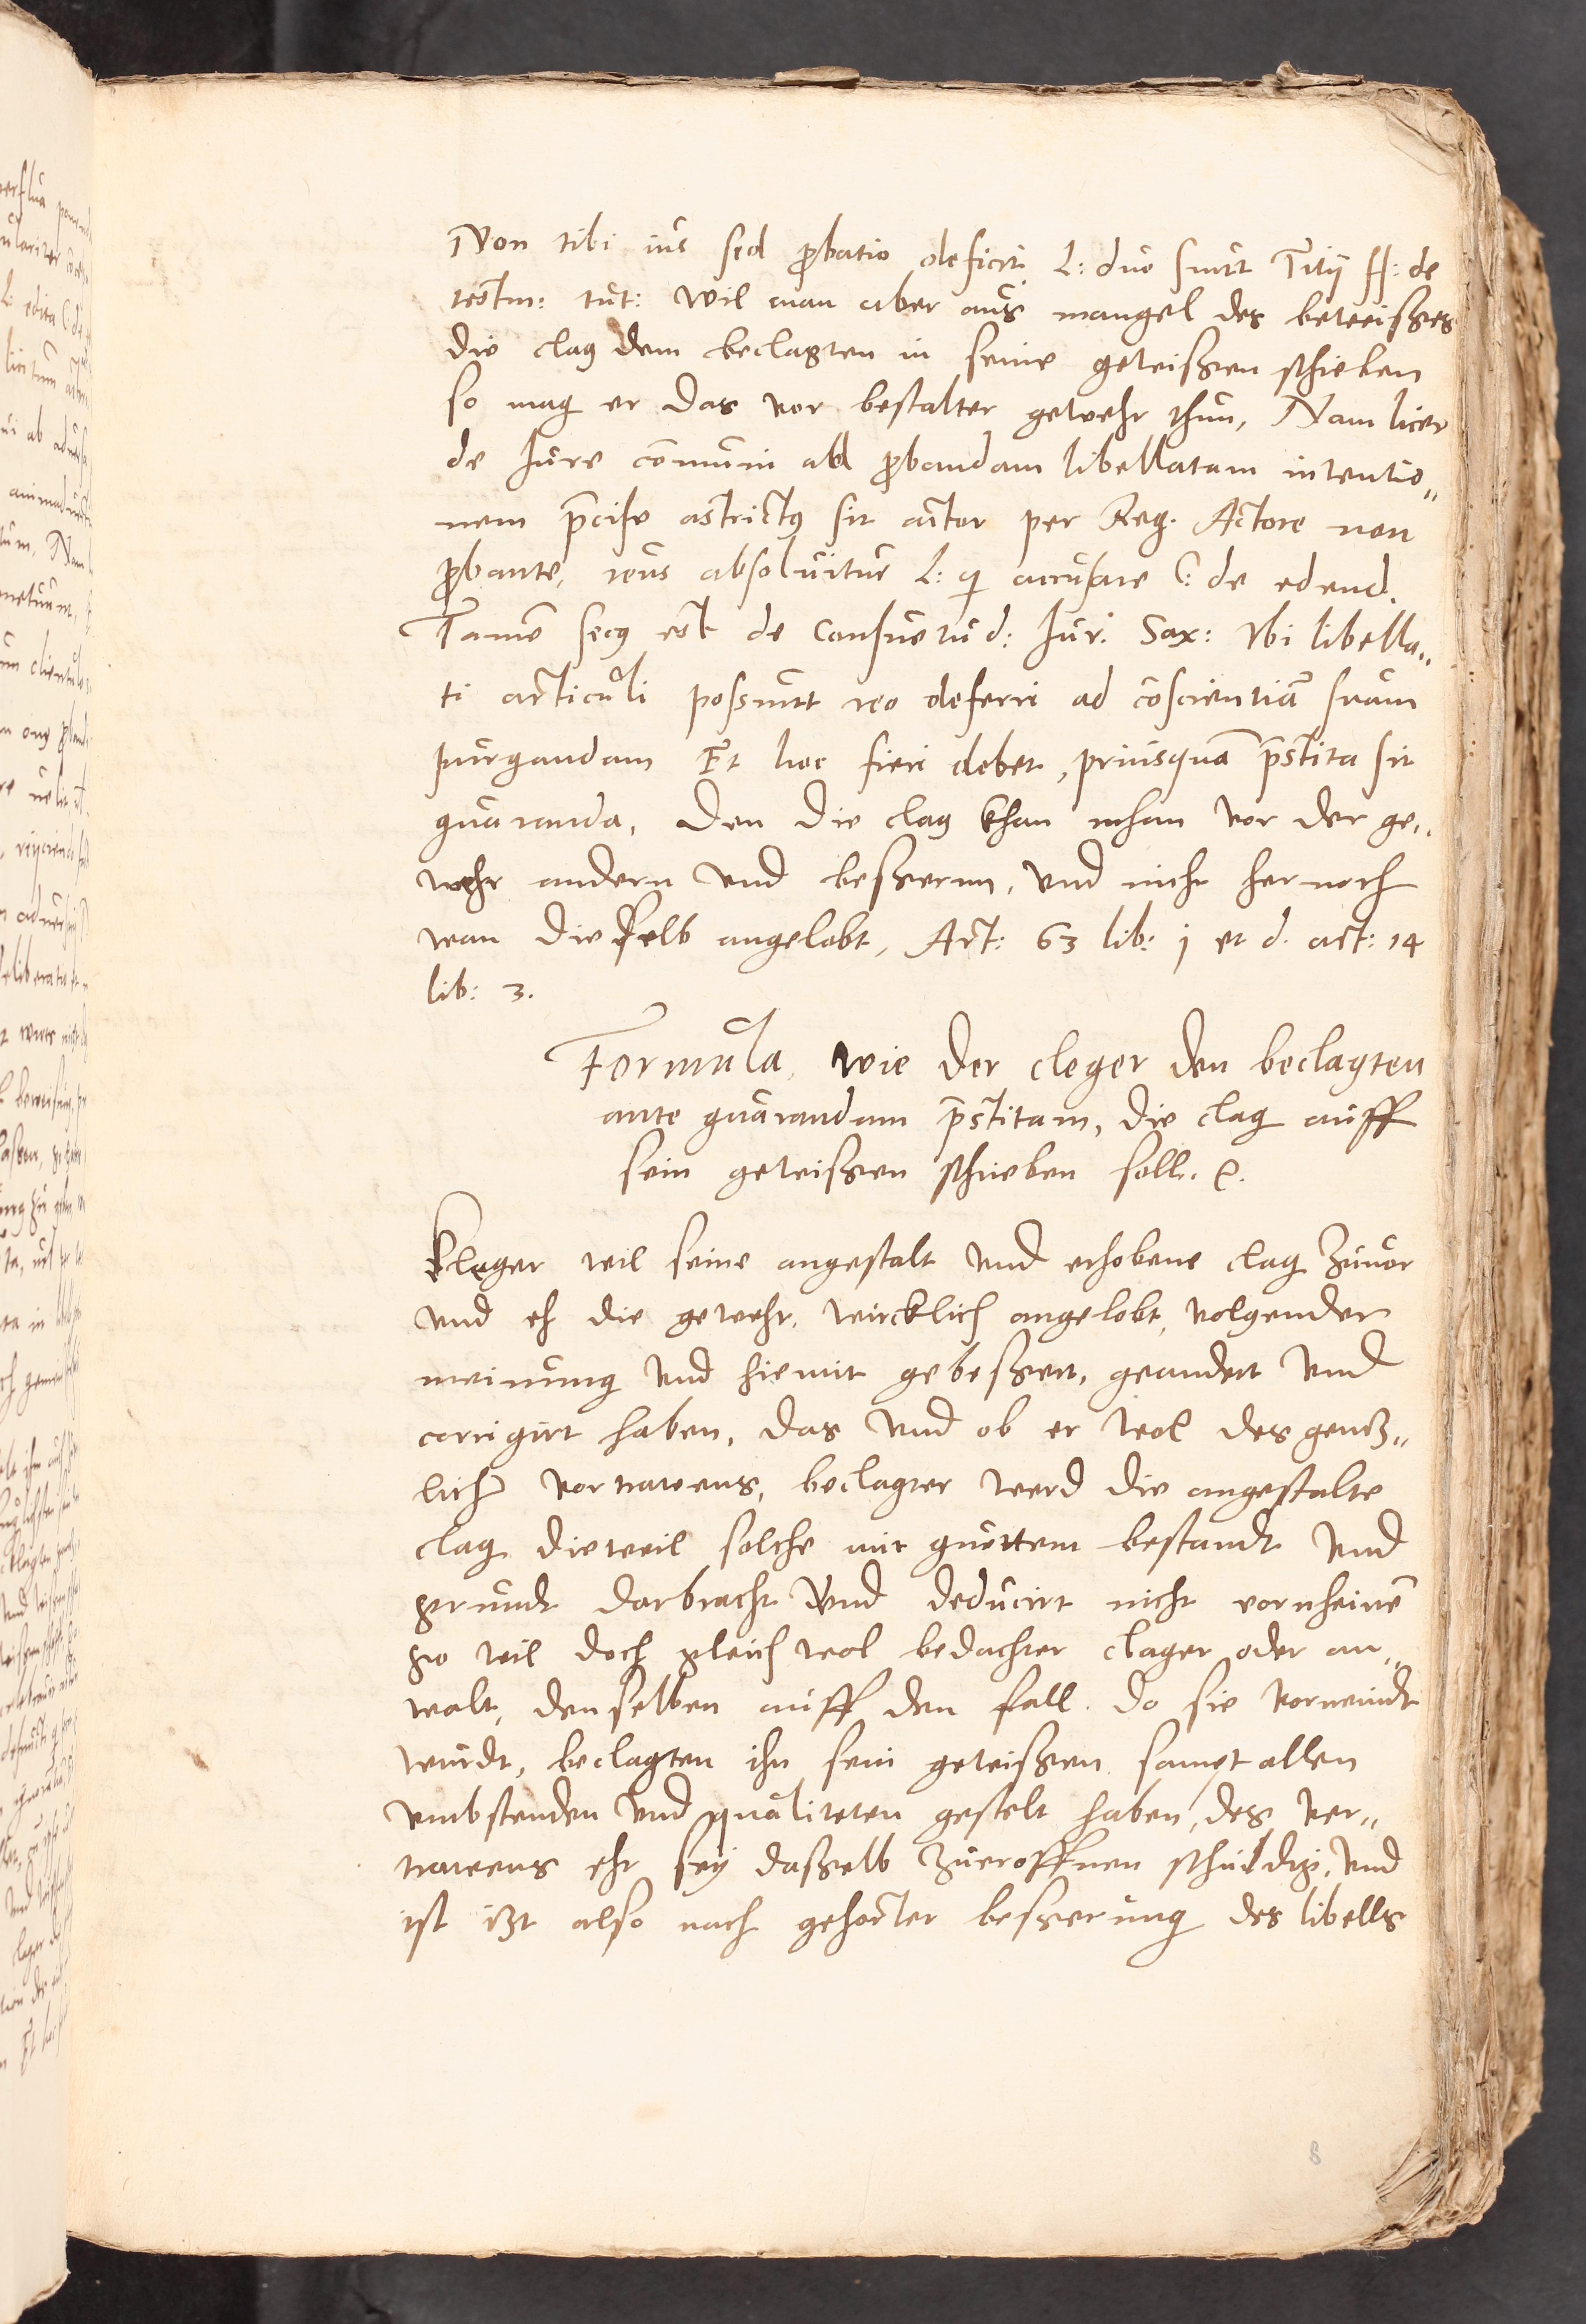 Non tibi ius sed probatio deficit L: duo sunt Titij ff: de
testm: tut: Wil man aber aus mangel des beweisses
die clag dem beclagten in seine gewissen schieben
so mag er das vor bestalter gewehr thun, Nam licet
de Jure com̄uni ad probandam libellatam intentio„
nem p̄cise astrictus sit actor per Reg. Actore non
probante, reus absoluitur L: qi accusare C: de edend.
Tamē secus est de Consuetud: Jur. Sax: Vbi libella„
ti articuli possunt reo deferri ad cōscientiā suam
purgandam Et hoc fieri debet, priusquā p̄stita sit
guaranda, Den die clag khan mhan vor der ge„
wehr andern vnd bessernn, vnd nicht hernoch
wan dieselb angelobt, Art: 63 lib: j et d. art: 14
lib: 3.
Formula, wie der cleger den beclagten
ante guarandam p̄stitam, die clag auff
sein gewissen schieben soll. &c.
Kleger wil seine angestalt vnd erhobene clag zuuor
vnd eh die gewehr, wircklich angelobt, volgender
meinung vnd hiemit gebessert, geandert vnd
corrigirt haben, das vnd ob er wol des gentz„
lichē vortrawens, beclagter werd die angestalte
clag dieweil solche mit guettem bestandt vnd
grundt dorbracht vnd deducirt nicht vornheinē
so wil doch gleich wol bedachter clager oder an„
walt, denselben auff den fall. do sie vorneindt
wurdt, beclagten ihn sein gewissen sampt allen
vmbstenden vnd qualiteten gestelt haben, des ver„
trawens ehr sey dasselb zueroffnen schuldig, vnd
ist itzt also nach gehorter besserung des libells
8